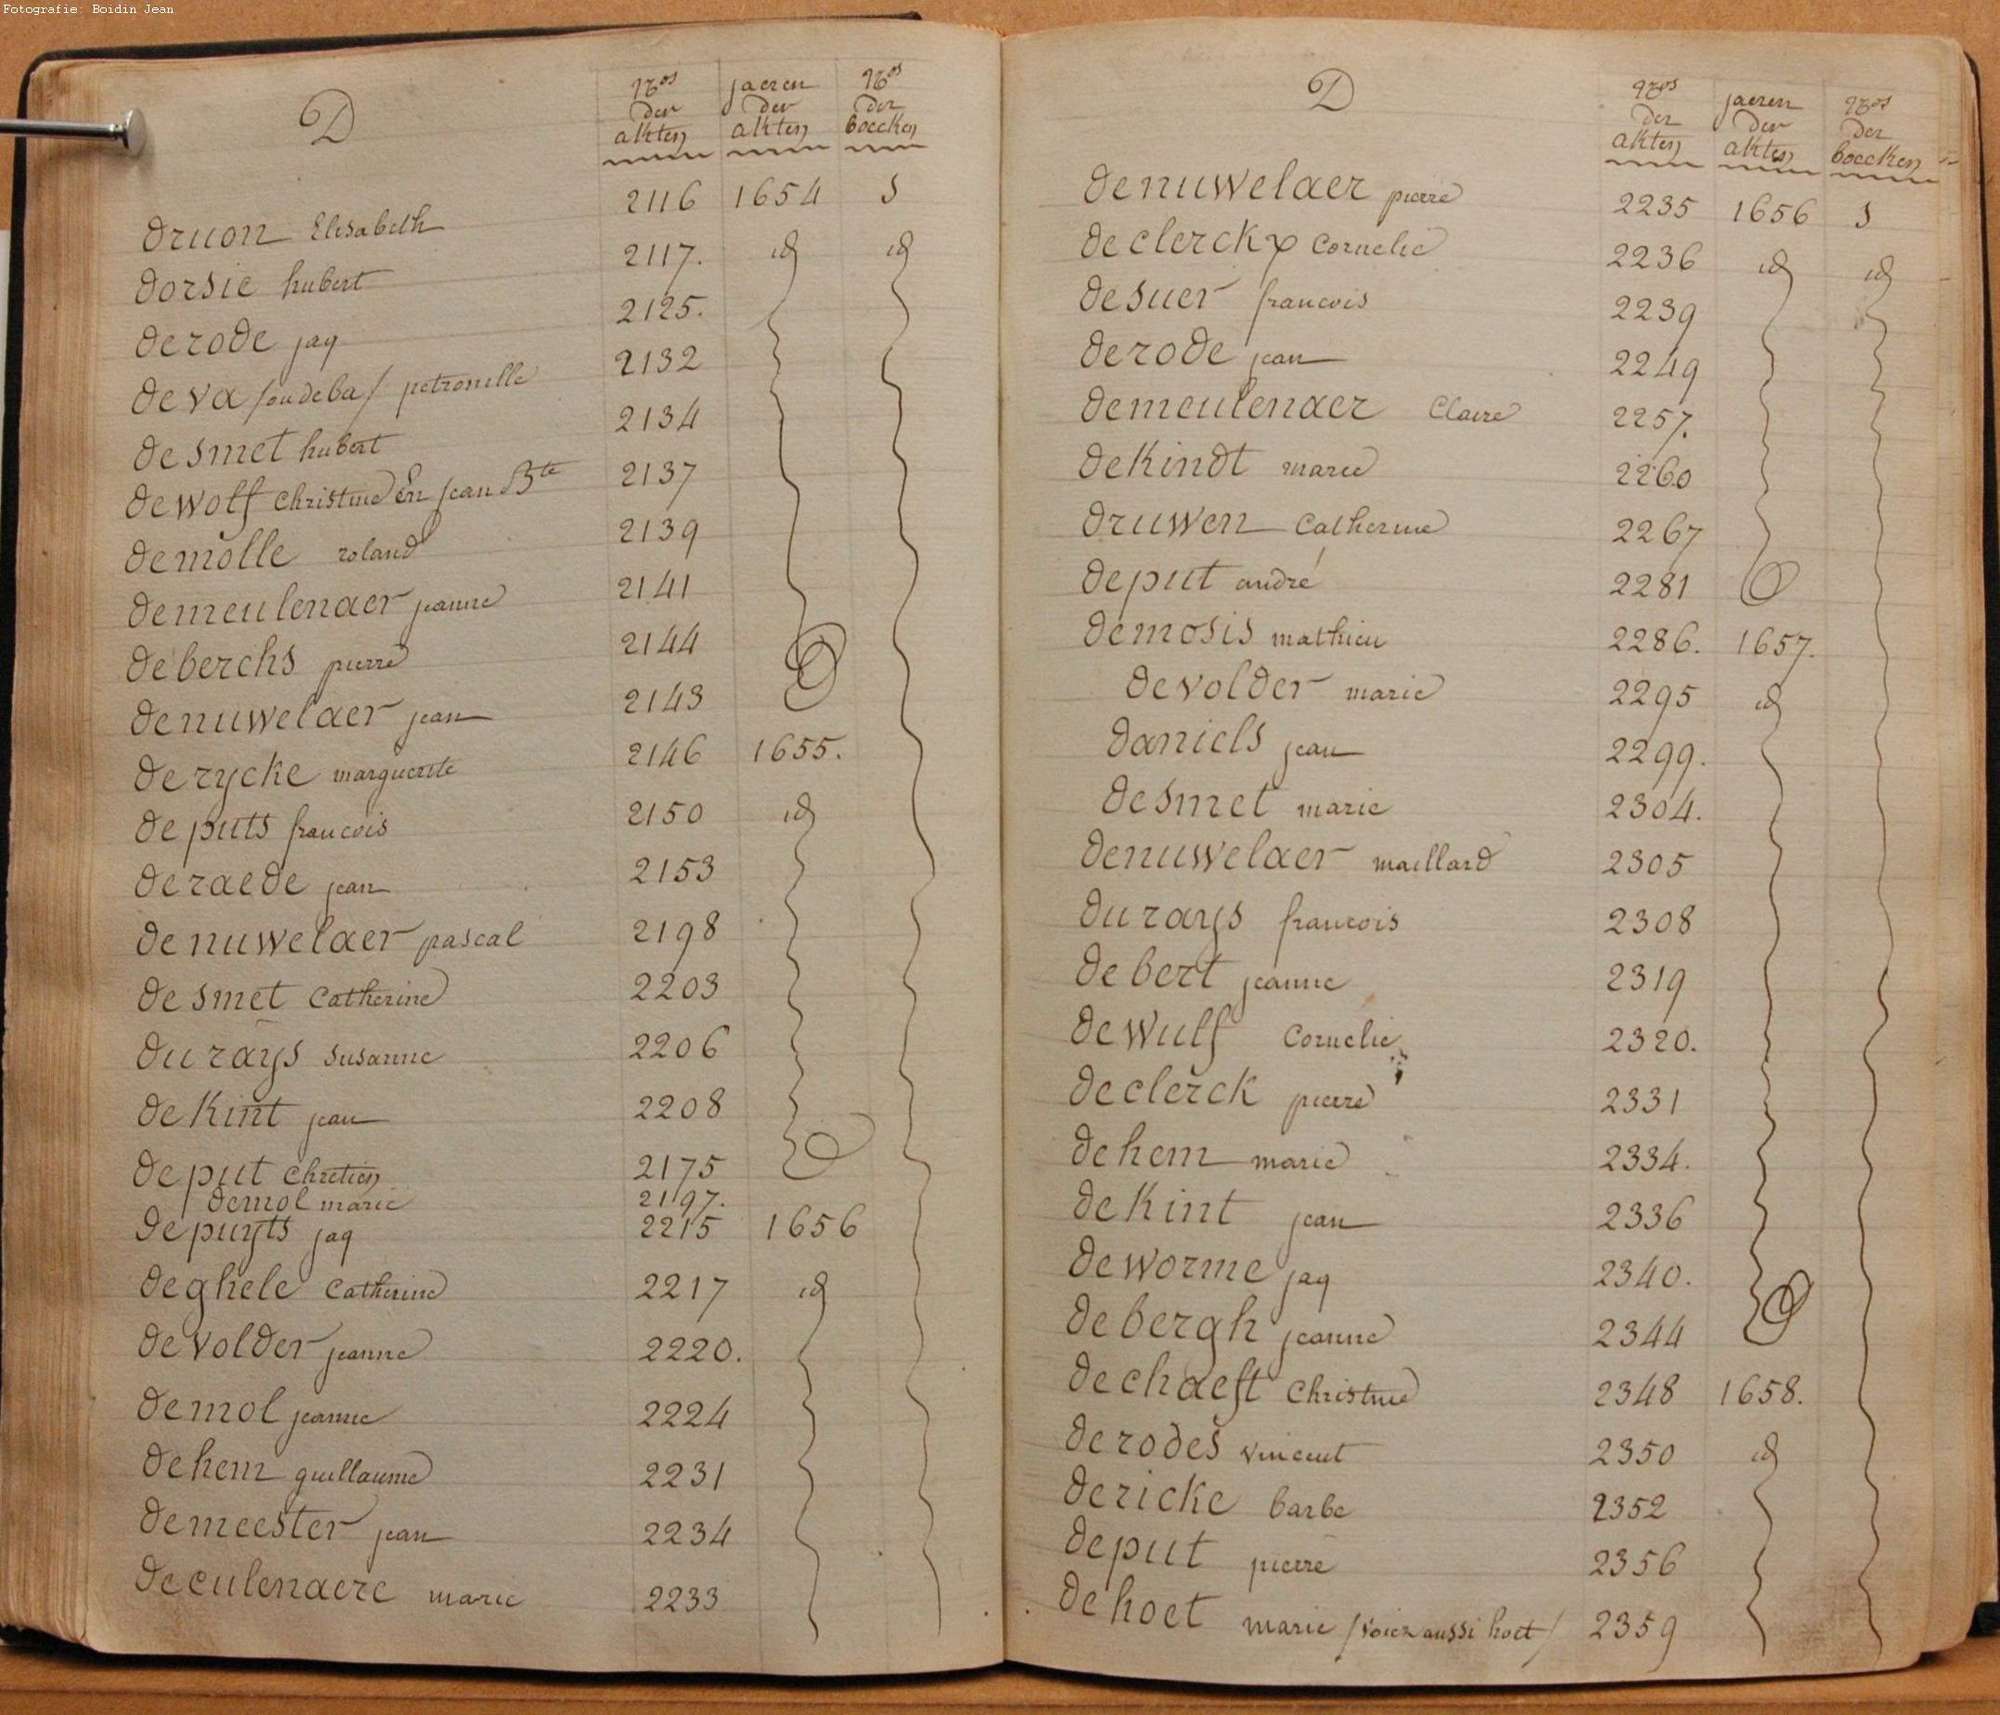 Fotografie: Boidin Jean
D
nros der akten jaeren der akten nros der boecken
druon Elisabeth 2116 1654 5
dorsie hubert 2117. id id
derode jaq 2125.
deva /ou deba/ petronille 2132
desmet hubert 2134
dewolf christine En jean Bte 2137
demolle roland 2139
demeulenaer jeanne 2141
deberchs pierre 2144
denuwelaer jean 2143
derycke marguerite 2146 1655.
deputs francois 2150 id
deraede jean 2153
denuwelaer pascal 2198
desmet Catherine 2203
durays susanne 2206
dekint jean 2208
deput chretien 2175
demol marie 2197.
depuyts jaq 2215 1656
deghele Catherine 2217 id
devolder jeanne 2220.
demol jeanne 2224
dehem guillaume 2231
demeester jean 2234
deculenaere marie 2233
D
nros der akten jaeren der akten nros der boecken
denuwelaer pierre 2235 1656 5
declerckx Cornelie 2236 id id
desuer francois 2239
derode jean 2249
demeulenaer Claire 2257.
dekindt marie 2260
druwen Catherine 2267
deput andré 2281
demosis mathieu 2286. 1657.
devolder marie 2295 id
daniels jean 2299.
desmet marie 2304.
denuwelaer maillard 2305
durays francois 2308
debert jeanne 2319
dewulf Cornelie 2320.
declerck pierre 2331
dehem marie 2334.
dekint jean 2336
deworme jaq 2340.
debergh jeanne 2344
dechaeft Christine 2348 1658.
derodes vincent 2350 id
dericke barbe 2352
deput pierre 2356
dehoet marie /voiez aussi hoet/ 2359